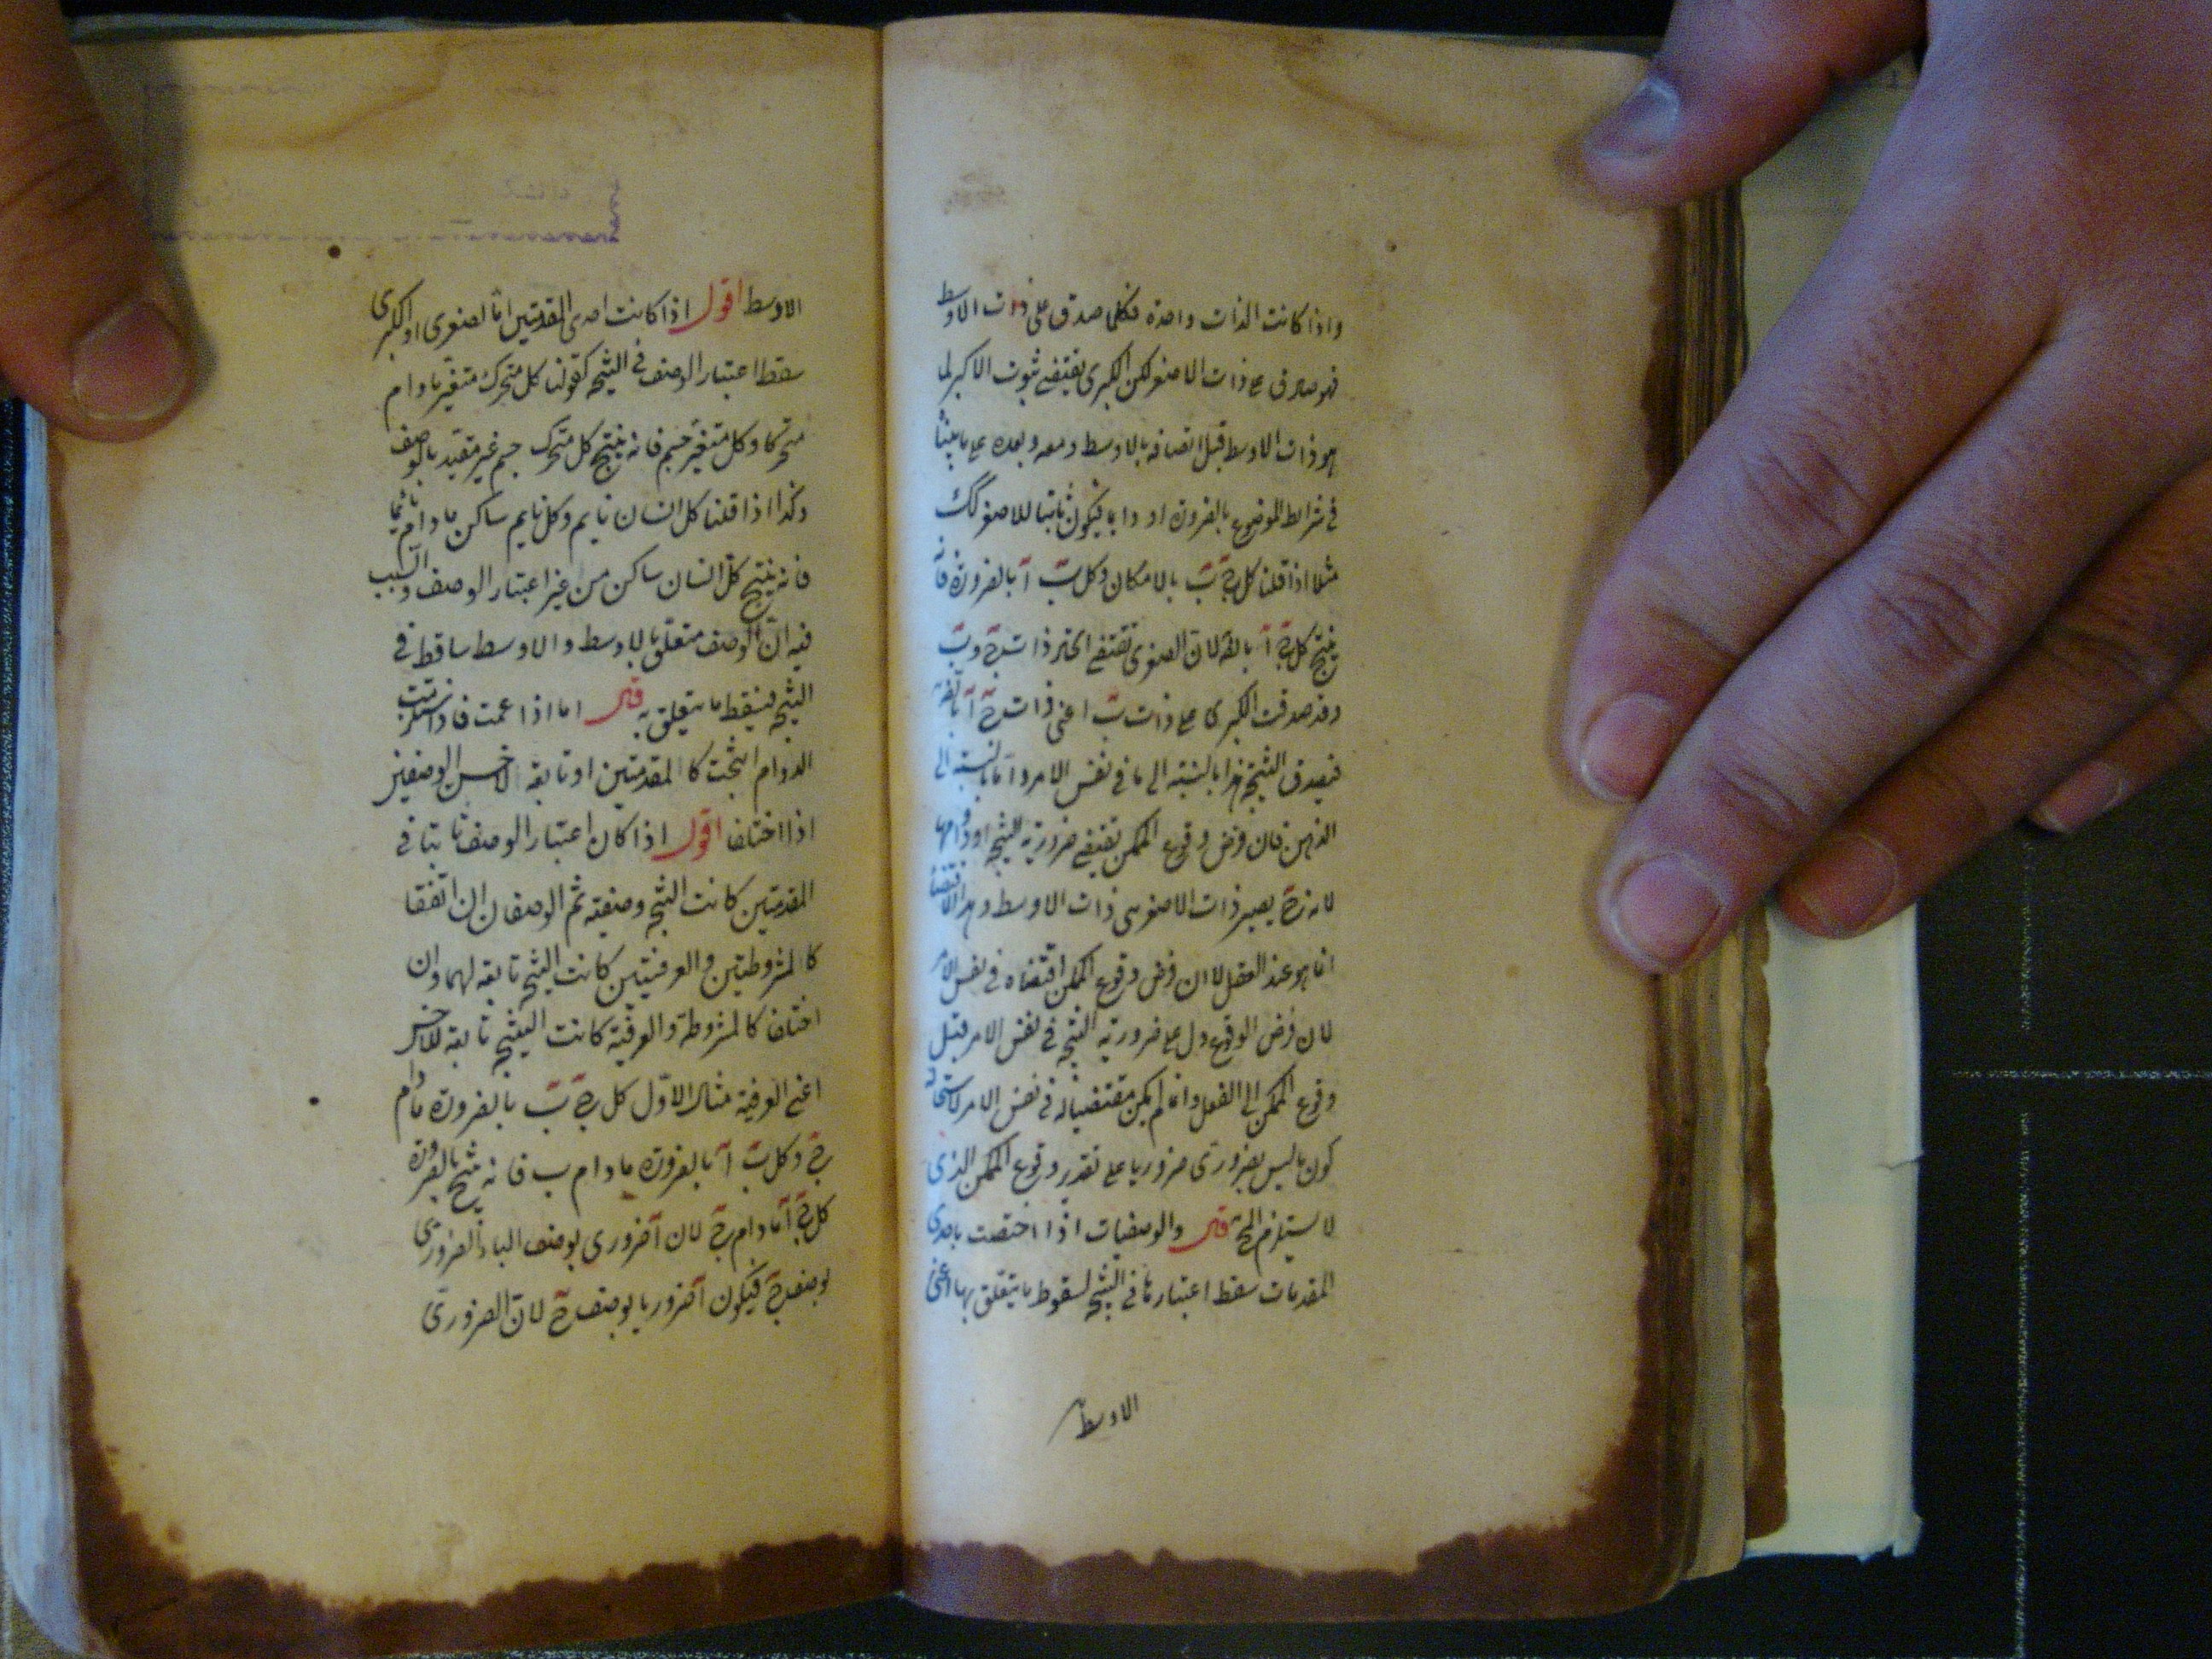 واذا كانت الذات واحدة فكلما صدق على ذات الاوسط
فهو صادق على ذات الاصغر لكن الكبرى يقتضى ثبوت الاكبر لما
هو ذات الاوسط قبل اتصافه بالاوسط ومعه وبعده على ما بينا
فى شرائط الموضوع بالضرورة او دايما فيكون ثابتا للاصغر كك
مثلا اذا قلنا كل ج ب بالامكان وكل ب آ بالضرورة فانه
ينتج كل ج آ بالضة لان الصغرى تقتضى ذات ج و ب
وقد صدقت الكبرى على ذات ب اعنى ذات ج آ بالضة
فيصدق النتيجة هذا بالنسبة الى ما فى نفس الامر واما بالنسبة الى
الذهن فان فرض وقوع الممكن تقتضى ضرورية النتيجة او دوامها
لانه ح يصير ذات الاصغر هى ذات الاوسط وهذا الاقتضا
انما هو عند العقل لا ان فرض وقوع الممكن اقتضاه فى نفس الامر
لان فرض الوقوع دل على ضرورية النتيجة فى نفس الامر قبل
وقوع الممكن الى الفعل وانه لم يكن مقتضيا له فى نفس الامر لاستحالة
كون ما ليس بضرورى ضروريا على تقدير وقوع الممكن الذى
لا يستلزم المح قال والوصفيات اذا اختصت باحدى
المقدمات سقط اعتبارها فى النتيجة لسقوط ما يتعلق بها اعنى
الاوسط
الاوسط اقول اذا كانت احدى المقدمتين اما الصغرى او الكبرى
سقط اعتبار الوصف فى النتيجة كقولنا كل متحرك متغير ما دام
متحركا وكل متغير جسم فانه ينتج كل متحرك جسم غير مقيد بالوصف
وكذا اذا قلنا كل انسان نايم وكل نايم ساكن ما دام نائما
فانه ينتج كل انسان ساكن من غير اعتبار الوصف والسبب
فيه ان الوصف متعلق بالاوسط والاوسط ساقط فى
النتيجة فيسقط ما يتعلق به قال اما اذا عمت فان استلزمت
الدوام انتجت كالمقدمتين او تابعة لاخس الوصفين
اذا اختلفا اقول اذا كان اعتبار الوصف ثابتا فى
المقدمتين كانت النتيجة وصفية ثم الوصفان ان اتفقا
كالمشروطتين والعرفيتين كانت النتيجة تابعة لهما وان
اختلفا كالمشروطة والعرفية كانت النتيجة تابعة للاخس
اعنى العرفية مثال الاول كل ج ب بالضرورة مادام
ج وكل ب آ بالضرورة مادام ب فانه ينتج بالضرورة
كل ج آ مادام ج لان آ ضرورى لوصف الباء الضرورى
لوصف ج فيكون آ ضروريا لوصف ج لان الضرورى